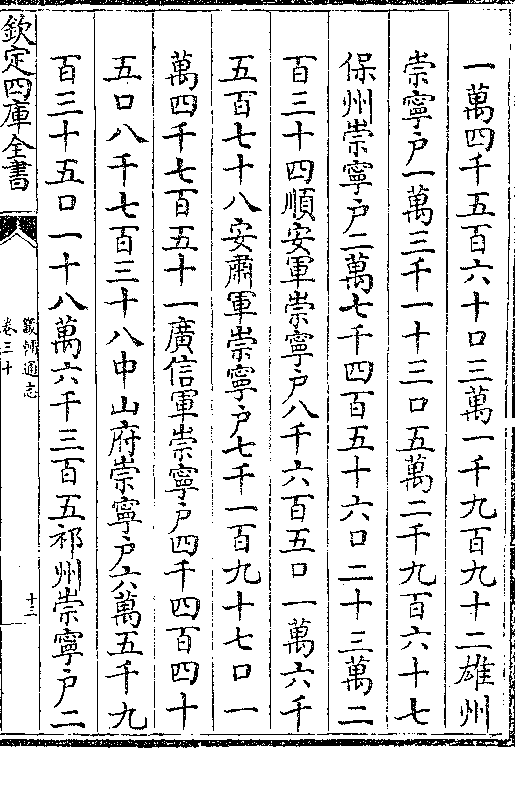 一萬四千五百六十口三萬一千九百九十二雄州
崇寧户一萬三千一十三口五萬二千九百六十七
保州崇寧户二萬七千四百五十六口二十三萬二
百三十四順安軍崇寧户八千六百五口一萬六千
五百七十八安肅軍崇寧户七千一百九十七口一
萬四千七百五十一廣信軍崇寧户四千四百四十
五口八千七百三十八中山府崇寧户六萬五千九
百三十五口一十八萬六千三百五祁州崇寧户二
欽定四庫全書
畿輔通志
卷三十
十三